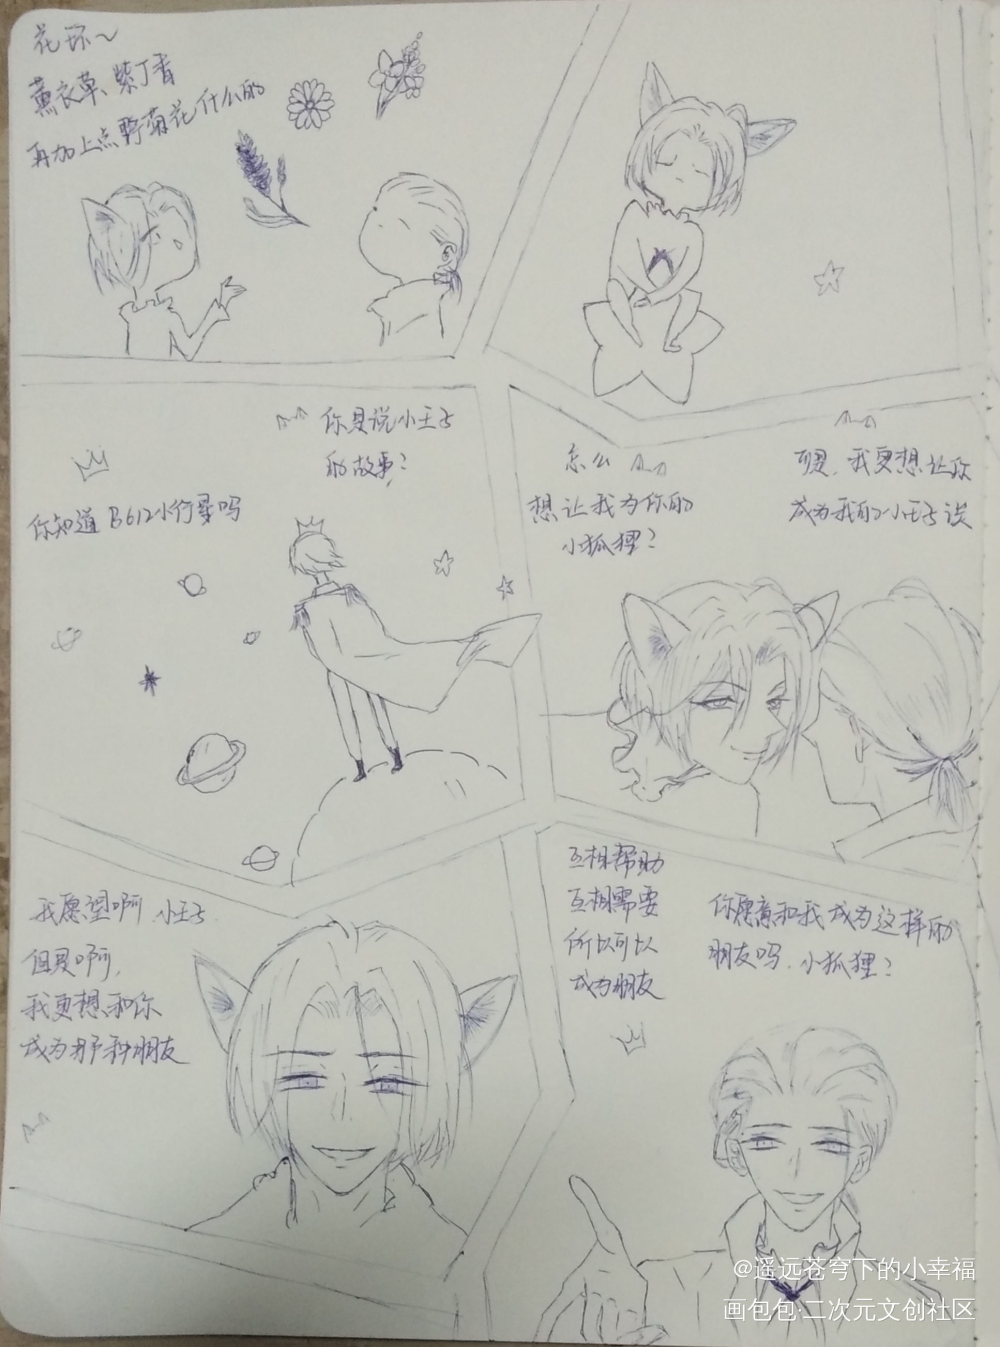 花环～
薰衣草、紫丁香
再加上点野菊花什么的
你是说小王子
的故事？
你知道B612小行星吗
怎么
想让我为你的
小狐狸？
可是，我更想让你
成为我的小王子诶
我愿望啊，小王子
但是啊，
我更想和你
成为那种朋友
互相帮助
互相需要
所以可以
成为朋友
你愿意和我成为这样的
朋友吗，小狐狸？
@遥远苍穹下的小幸福
画包包·二次元文创社区